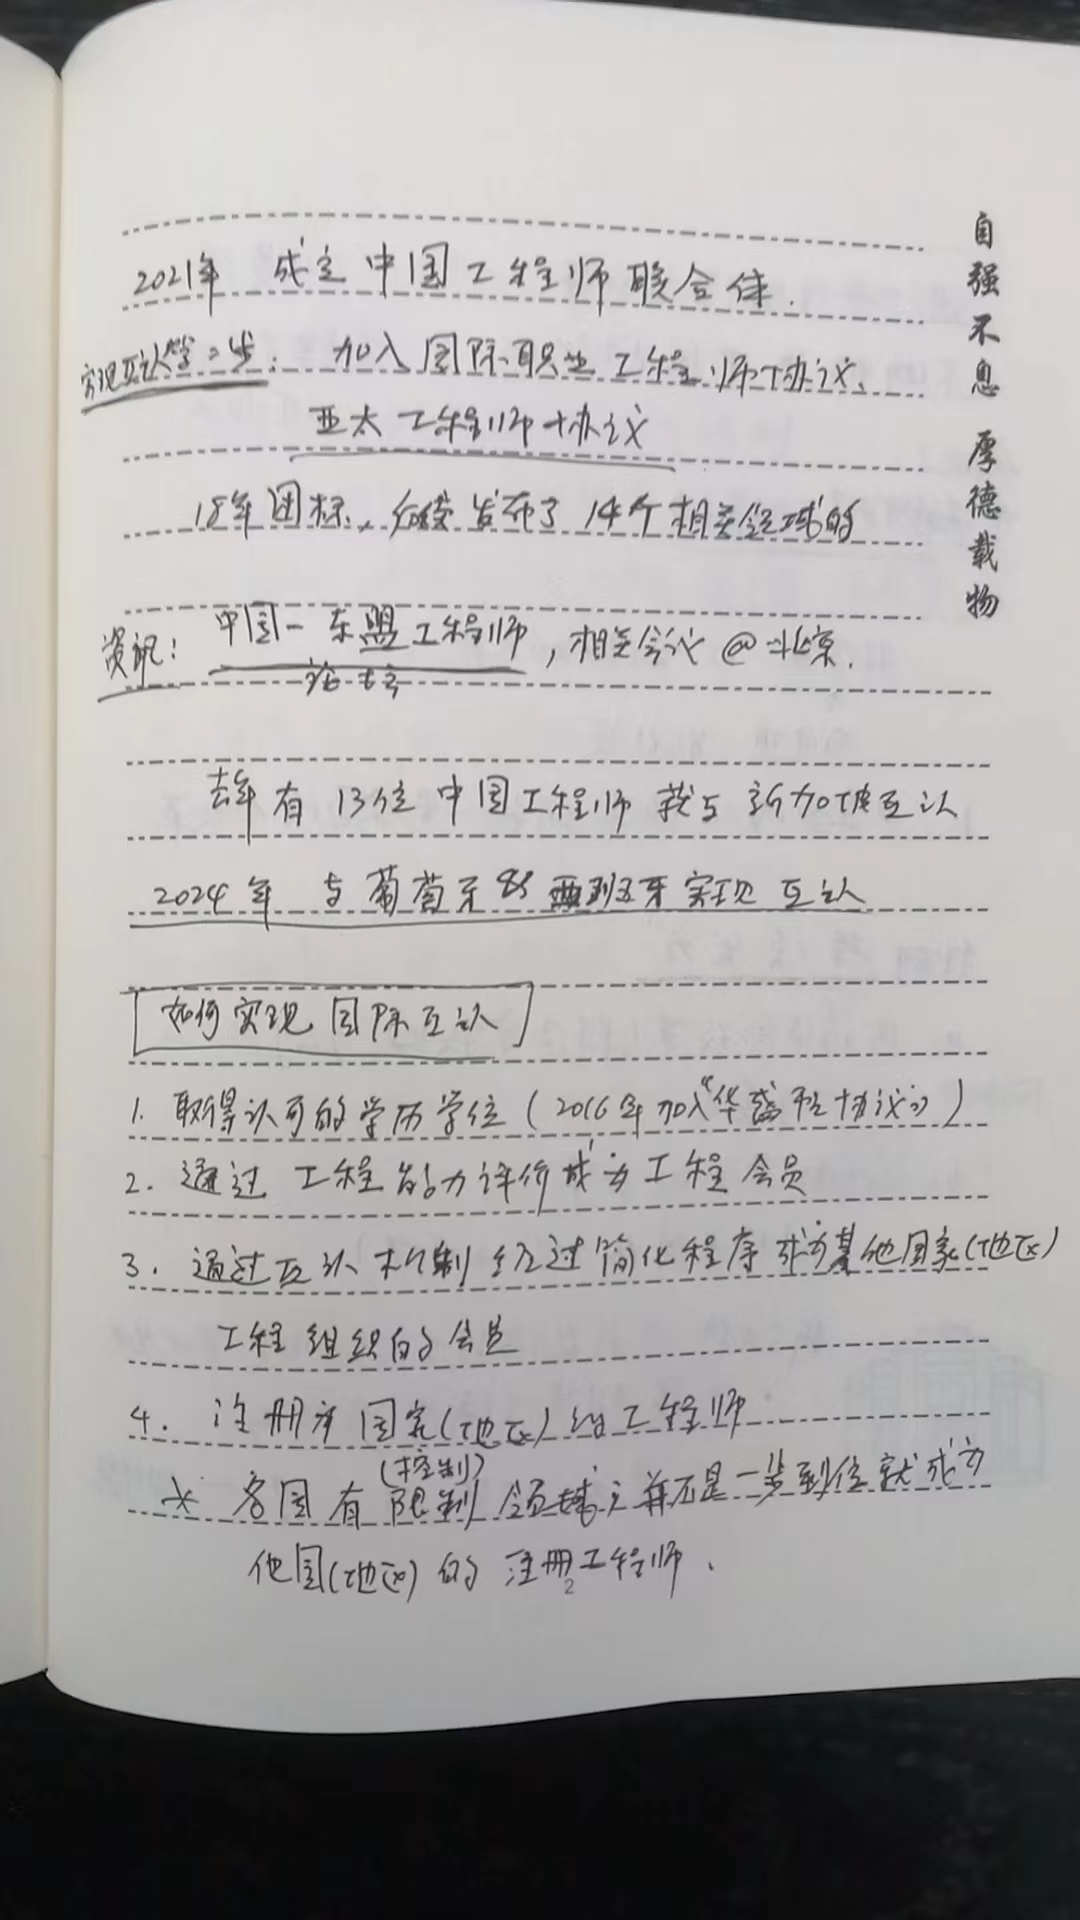 2021年 成立中国工程师联合体.
实现互认第二步: 加入国际职业工程师协议、
亚太工程师协议
18年团标, 后续发布了14个相关领域的
资讯: 中国一东盟工程师, 相关会议@北京.
论坛
去年有13位中国工程师 与新加坡互认
2024年 与葡萄牙 西班牙实现互认
如何实现国际互认
1. 取得认可的学历学位(2016年加入“华盛顿协议”)
2. 通过工程能力评价成为工程会员
3. 通过互认机制经过简化程序成为其他国家(地区)
工程组织的会员
4. 注册为国家(地区)级工程师
(控制)
* 各国有限制领域, 并不是一步到位就成为
他国(地区)的注册工程师.
2
自强不息 厚德载物